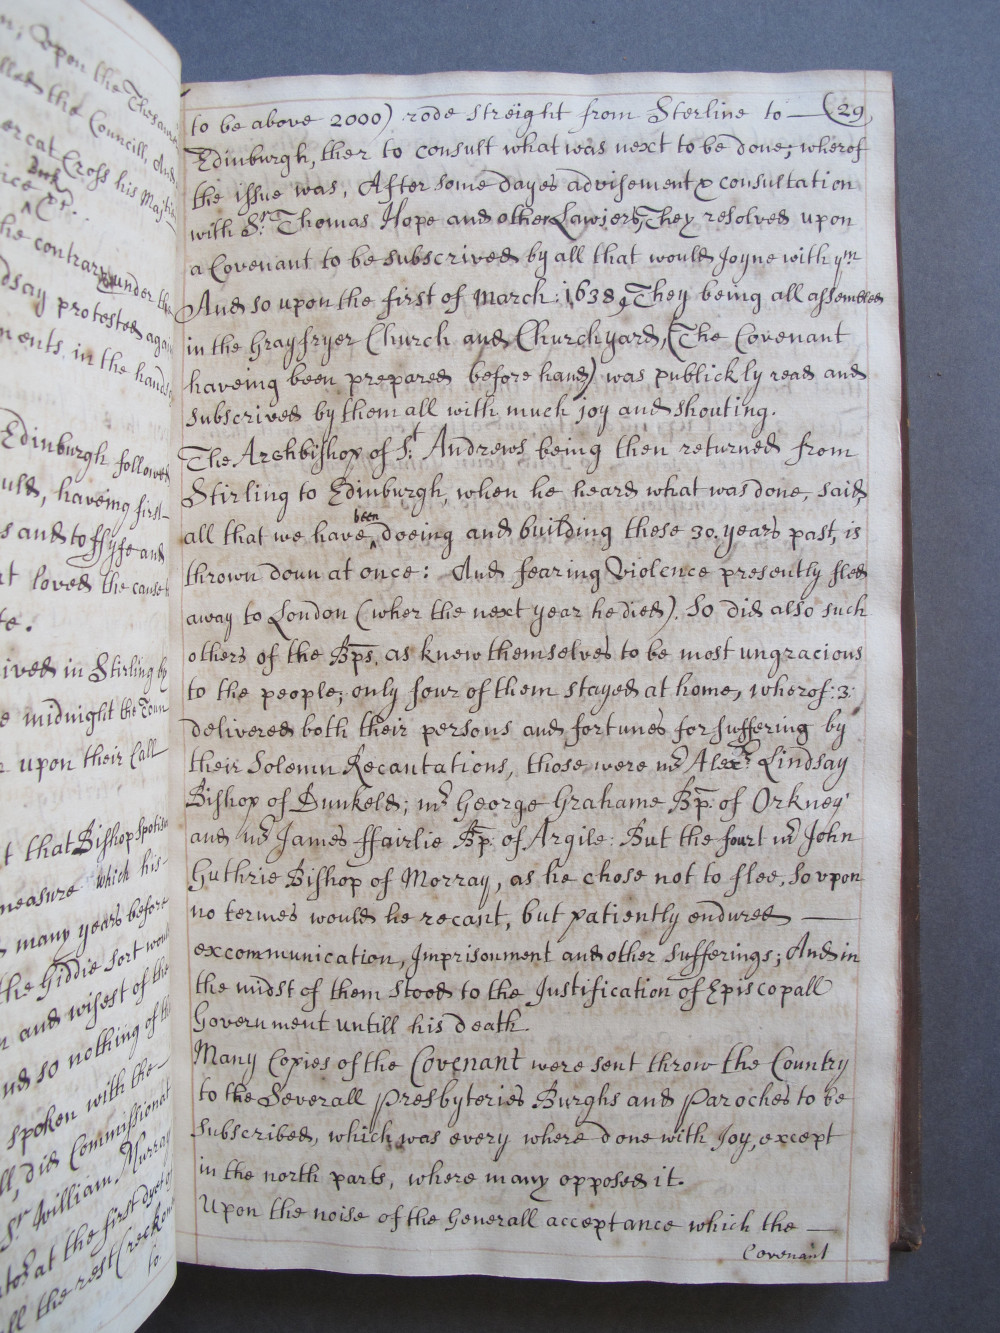 n, Upon the Thesaurer
lled the Councill, And
ercat Cross his Majesties
ice
the contrary under the
dsay protested again
ments in the hands
Edinburgh followed
uld, haveing first
s and to ffyfe and
at loved the cause
te.
ived in Stirling by
e midnight the Town
upon their Call
t that Bishop Spotis
measure which his
many years before
the Giddie sort would
n and wisest of the
nd so nothing of th
spoken with the
ll, did Commissionat
Sr William Murray
at the first dyet of
ll the rest (reckoned
to
to be above 2000) rode streight from Sterline to — (29)
Edinburgh, ther to consult what was next to be done; wherof
the issue was, After some dayes advisement & consultation
with Sr. Thomas Hope and other Lawjers, They resolved upon
a Covenant to be subscrived by all that would Joyne with ym
And so upon the first of March: 1638, They being all assembled
in the Grayfryer Church and Churchyard, (The Covenant
haveing been prepared before hand) was publickly read and
subscrived by them all with much joy and shouting.
The Archbishop of St. Andrews being then returned from
Stirling to Edinburgh, when he heard what was done, said,
all that we have been doeing and building these 30. years past, is
thrown doun at once: And fearing Violence presently fled
away to London (wher the next year he died). So did also such
others of the Bps. as knew themselves to be most ungracious
to the people; only four of them stayed at home, wherof :3:
delivered both their persons and fortunes for suffering by
their Solemn Recantations, those were mr. Alexr. Lindsay
Bishop of Dunkeld; mr. George Grahame Bp: of Orkney
and mr. James ffairlie Bp: of Argile: But the fourt mr. John
Guthrie Bishop of Morray, as he chose not to flee, So vpon
no termes would he recant, but patiently endured —
excommunication, Imprisonment and other sufferings; And in
the midst of them stood to the Justification of Episcopall
Government untill his death.
Many Copies of the Covenant were sent throw the Country
to the Severall Presbyteries Burghs and Paroches to be
subscribed, which was every where done with Joy, except
in the north parts, where many opposed it.
Upon the noise of the Generall acceptance which the —
Covenant